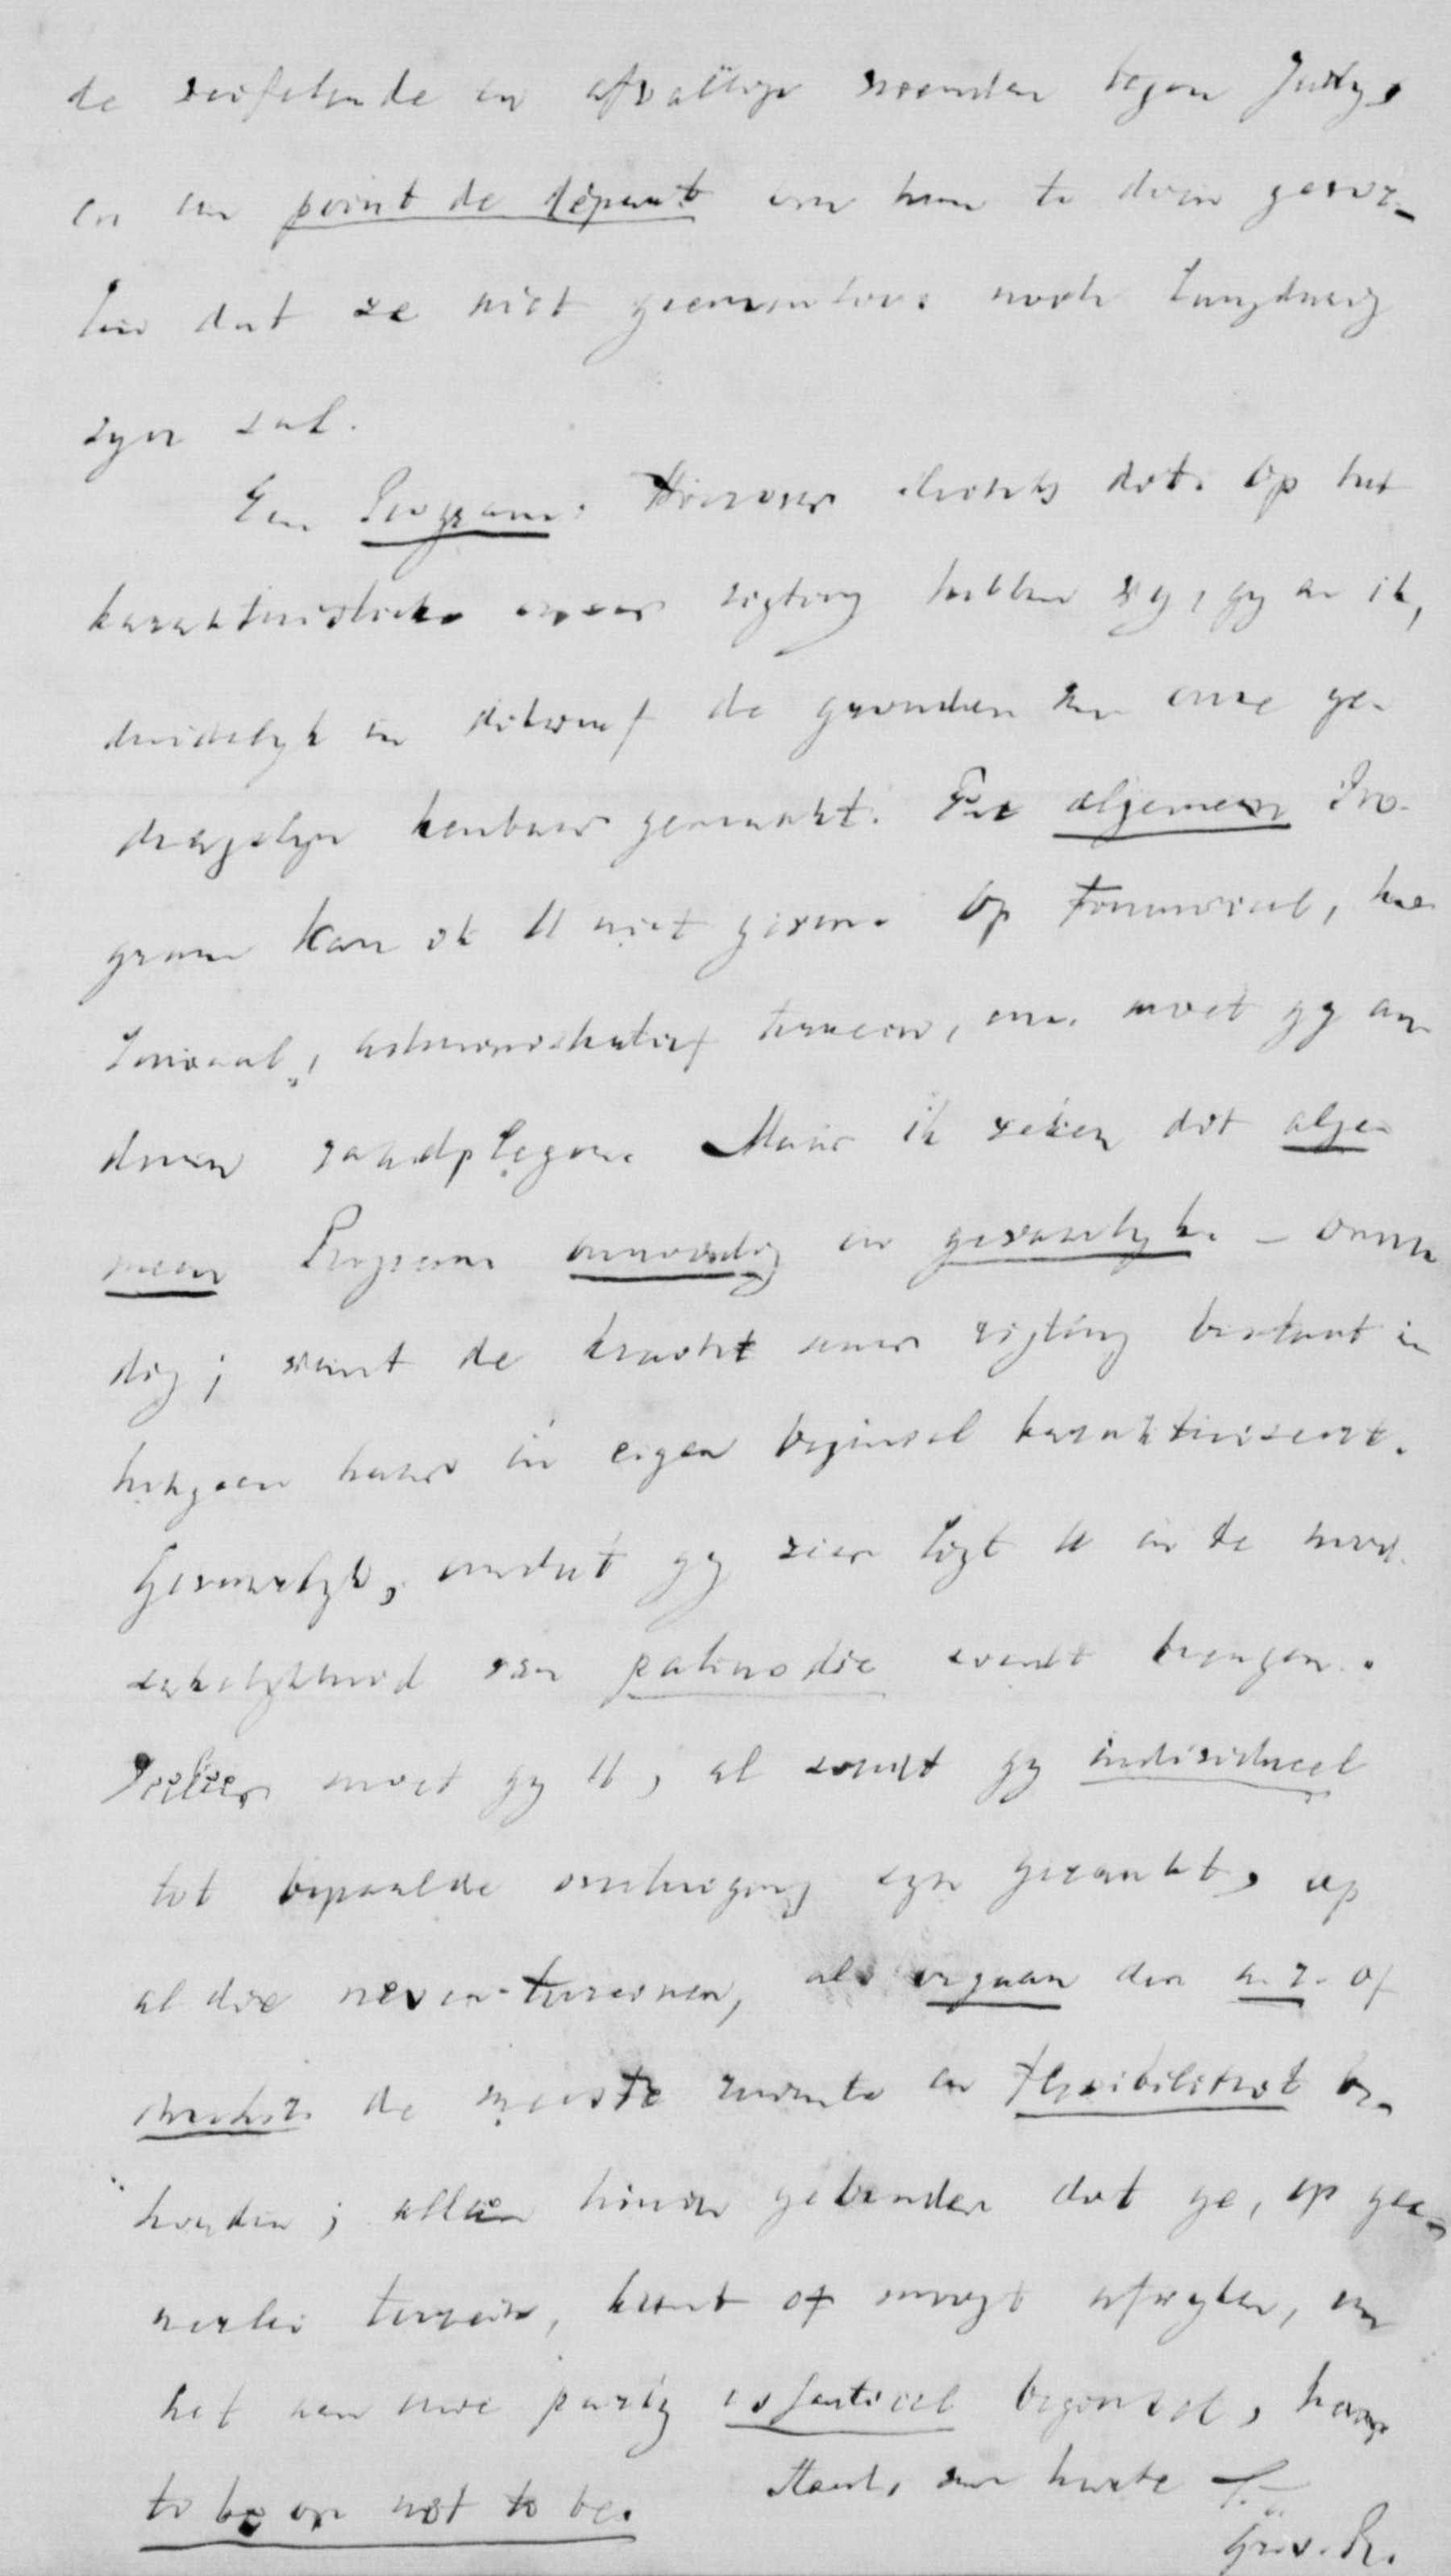 de twijfelende en afvallige vrienden tegen July,
en een point de départ om hen te doen gevoe-
len dat ze niet grenzenloos noch langdurig
zyn zal.
Een Program. Hierover slechts dit. Op het
karakteristieke onzer rigting hebben wy, gy en ik,
duidelyk en stellig de gronden van onze ge-
dragslyn kenbaar gemaakt. Een algemeen Pro-
gram kan ik U niet geven. Op financieel, ko-
loniaal, administratief terrein, enz. moet gy an-
deren raadplegen. Maar ik reken dit alge-
meen Program onnoodig en gevaarlyk. – Onnoo-
dig; want de kracht onzer rigting bestaat in
hetgeen haar in eigen beginsel karakteriseert.
Gevaarlyk, omdat gy zeer ligt U in de nood-
zakelykheid van palinodie zoudt brengen.
Liever moet gy U, al zoudt gy individueel
tot bepaalde overtuiging zyn geraakt, op
al die neven-terreinen, als orgaan der a.r. of
de meeste ruimte en flexibiliteit be-
houden; alleen hieraan gebonden dat ge, op gee-
nerlei terrein, kunt of moogt afwyken, van
het aan onze party essentieel beginsel, haar
to be or not to be. Steeds van harte t.
Gr. v. Pr.